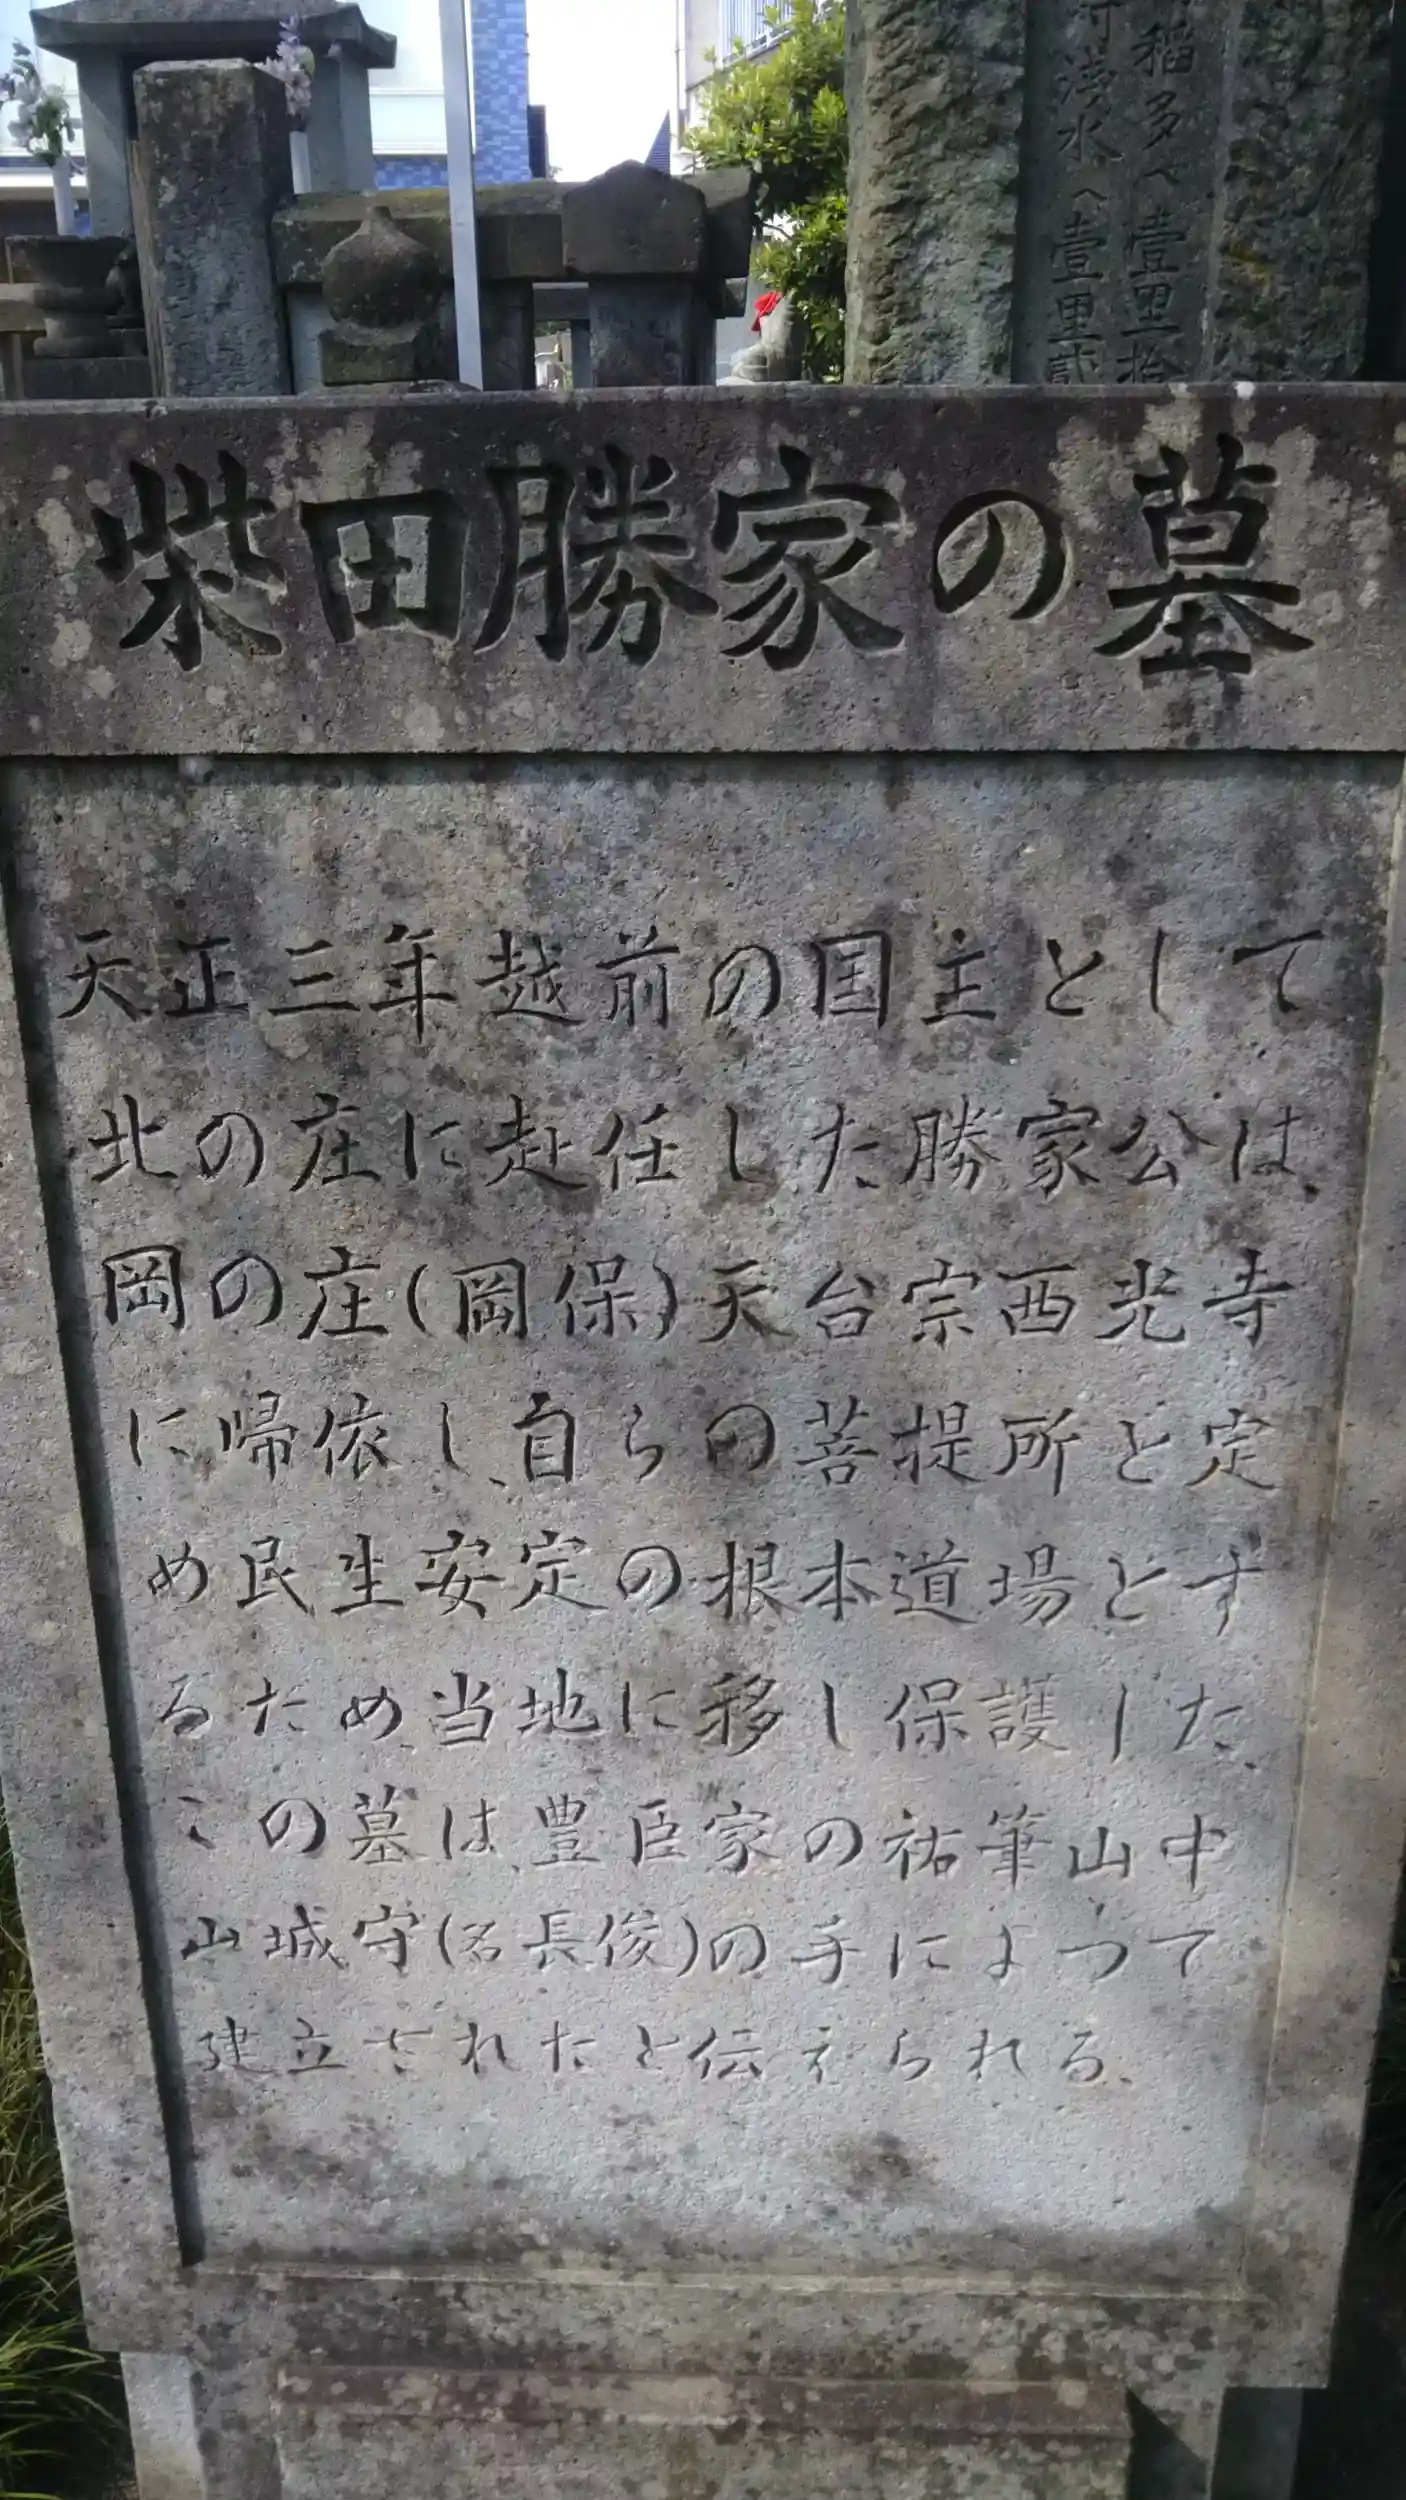 稲多へ壹里拾
浅水へ壹里弐
柴田勝家の墓
天正三年越前の国主として
北の庄に赴任した勝家公は、
岡の庄(岡保)天台宗西光寺
に帰依し、自らの菩提所と定
め民生安定の根本道場とす
るため当地に移し保護した、
この墓は、豊臣家の祐筆山中
山城守(名長俊)の手によって
建立されたと伝えられる、